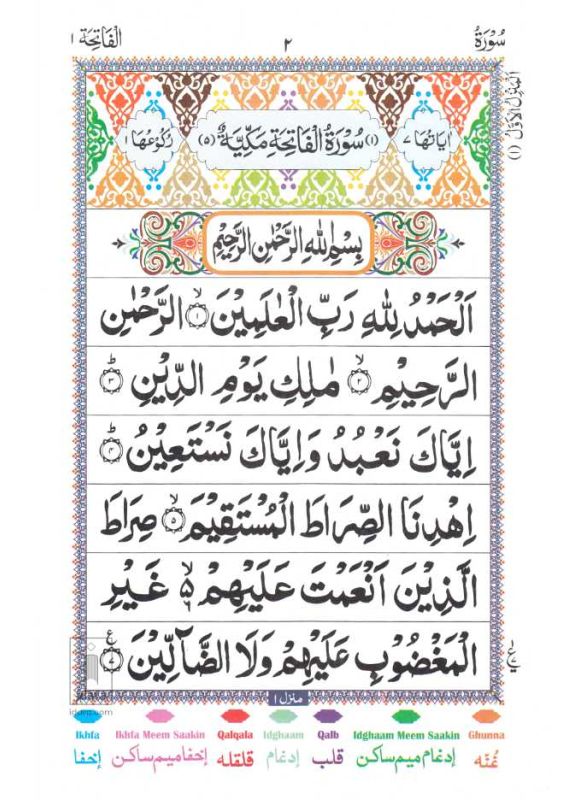 سُوْرَةُ ٢ الْفَاتِحَة ١
اَلْمَنْزِلُ الْاَوَّلُ (١)
اٰيَاتُهَا ٧ (١) سُوْرَةُ الْفَاتِحَةِ مَكِّيَّةٌ (٥) رُكُوْعُهَا ١
بِسْمِ اللّٰهِ الرَّحْمٰنِ الرَّحِيْمِ
اَلْحَمْدُ لِلّٰهِ رَبِّ الْعٰلَمِيْنَ ۙ﴿١﴾ الرَّحْمٰنِ
الرَّحِيْمِ ۙ﴿٢﴾ مٰلِكِ يَوْمِ الدِّيْنِ ؕ﴿٣﴾
اِيَّاكَ نَعْبُدُ وَاِيَّاكَ نَسْتَعِيْنُ ؕ﴿٤﴾
اِهْدِنَا الصِّرَاطَ الْمُسْتَقِيْمَ ۙ﴿٥﴾ صِرَاطَ
الَّذِيْنَ اَنْعَمْتَ عَلَيْهِمْ ۙ۬ۦ غَيْرِ
الْمَغْضُوْبِ عَلَيْهِمْ وَلَا الضَّآلِّيْنَ ﴿٧﴾ ع
منزل ١
Ikhfa Ikhfa Meem Saakin Qalqala Idghaam Qalb Idghaam Meem Saakin Ghunna
غُنَّه اِدغام میم ساکن قلب اِدغام قلقله اِخفا میم ساکن اِخفا